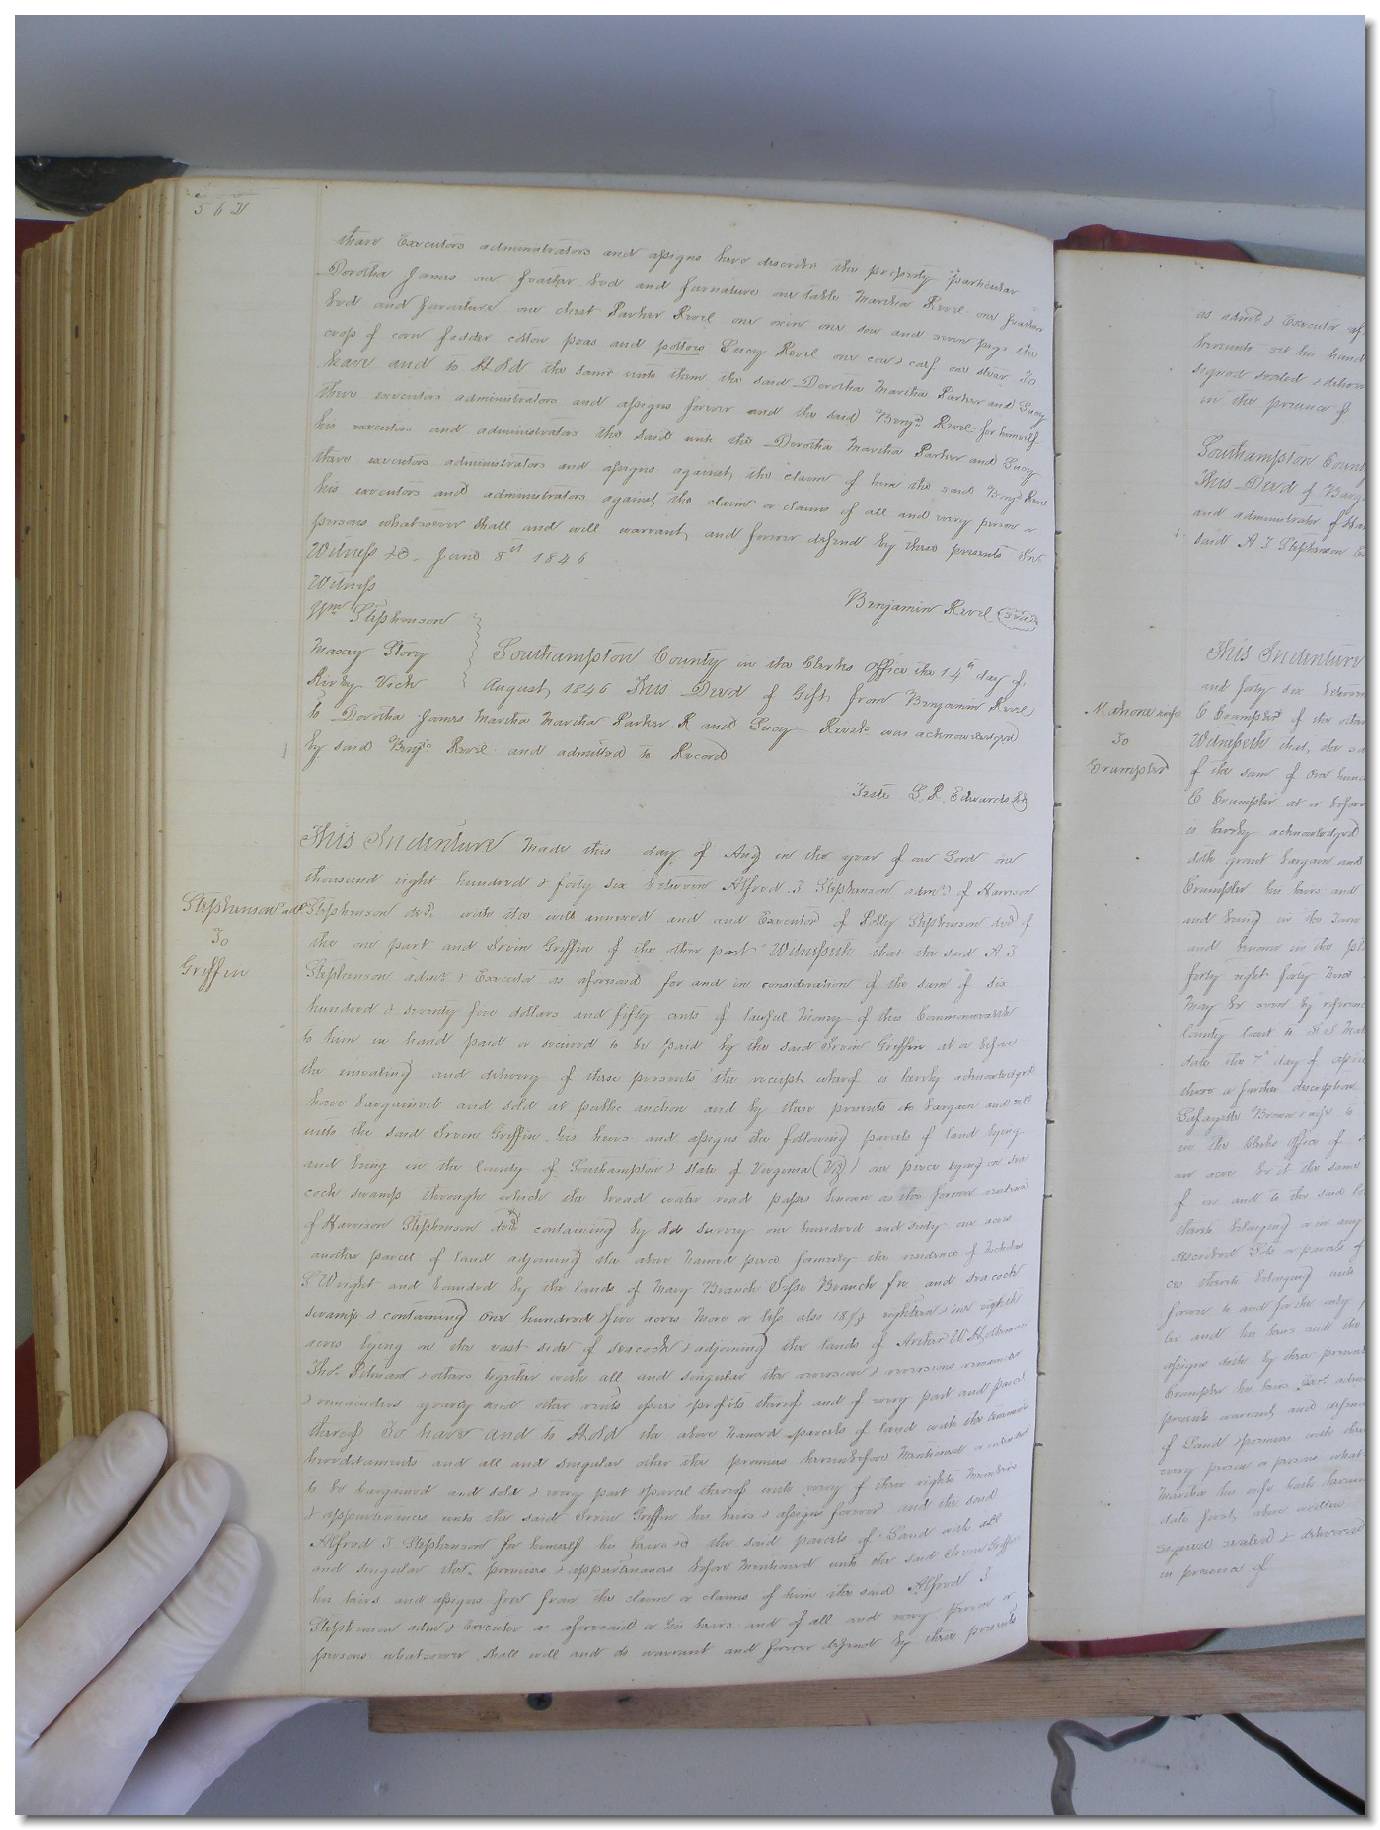 562
thare Executors administrators and assigns have desorder the property particular
Dorotha James one feather bed and furnature one table Martha Revel one feather
bed and furniture one chest Parker Revel one oxen one sow and seven pigs the
crop of corn fodder cotton peas and potters Lucy Revel one cow & calf one stear To
have and to Hold the same unto them the said Dorotha Martha Parker and Lucy
there executors administrators and assigns forever and the said Benjn Revel for himself
his executors and administrators the said unto the Dorotha Martha Parker and Lucy
thare executors administrators and assigns against the claim of him the said Benjn Revel
his executors and administrators against the claim or claims of all and every person or
persons whatsoever shall and will warrant and forever defend by these presents In
Witness &c. June 8th 1846
Witness
Benjamin Revel (seal)
Wm Stephenson
Macey Story
Kirby Vick
Southampton County in the Clerks Office the 14th day of
August 1846 This Deed of Gift from Benjamin Revel
to Dorotha James Martha Martha Parker R and Lucy Revel was acknowledged
by said Benjn Revel and admitted to Record
Teste L. R. Edwards
This Indenture Made this day of Aug in the year of our Lord one
thousand eight hundred & forty six between Alfred J Stephenson adm. of Harrison
Stephenson adm
To
Griffin
Stephenson decd. with the will annexed and and Executor of Polly Stephenson decd of
the one part and Irvin Griffin of the other part Witnesseth that the said A J
Stephenson admr & Executor as aforesaid for and in consideration of the sum of six
hundred & seventy five dollars and fifty cents of lawful Money of this Commonwealth
to him in hand paid or secured to be paid by the said Irvin Griffin at or before
the ensealing and delivery of these presents the receipt whereof is hereby acknowledged
have bargained and sold at public auction and by these presents do bargain and sell
unto the said Irvin Griffin his heirs and assigns the following parcels of land lying
and being in the County of Southampton & state of Virginia (Viz) one piece lying on sea
cock swamp through which the broad water road passes known as the former residence
of Harrison Stephenson decd containing by survey one hundred and sixty one acres
another parcel of land adjoining the above named piece formerly the residence of
S Wright and bounded by the lands of Mary Branch Jesse Branch fre and seacock
swamp & containing One hundred & five acres More or less also 18 1/8 eighteen & one eighth
acres lying on the east side of seacock & adjoining the lands of Archer W H
Tho. Pitman & others together with all and singular the reversion & reversions remainder
& remainders yearly and other rents issues profits thereof and of every part and parcel
thereof To have and to Hold the above named parcels of land with the tenements
hereditaments and all and singular other the premises hereinbefore Mentioned or intended
to be bargained and sold & every part & parcel thereof with every of their rights Members
& appurtenances unto the said Irvin Griffin his heirs & assigns forever and the said
Alfred J Stephenson for himself his heirs &c the said parcels of Land with all
and singular the premises & appurtenances before Mentioned unto the said Irvin Griffin
his heirs and assigns free from the claim or claims of him the said Alfred J
Stephenson adm & executor as aforesaid or his heirs and of all and every person or
persons whatsoever shall will and do warrant and forever defend by these presents
as adm & Executor of
hereunto set his hand
signed sealed & deliver
in the presence of
Southampton Count
This Deed of Barg
and administrator of Har
said A J Stephenson
This Indenture
and forty six between
C Crumpler of the other
Mahone wife
To
Crumpler
Witnesseth that, the sa
of the sum of One hund
C Crumpler at or befor
is hereby acknowledged
doth grant bargain and
Crumpler his heirs and
and being in the Town
and known in the pl
forty eight forty nine
May be seen by referen
County Court to
date the 7th day of april
there a further description
Lafayette Brown & wife to
in the Clerks Office of
an acre be it the same
of in and to the said
thereto belonging or in any
forever to and for the only
his and his heirs and the
assigns doth by these presents
Crumpler his heirs Exrs admr
presents warrant and defend
of Land & premises with their
every person or persons what
Martha his wife hath hereun
date first above written
signed sealed & delivered
in presence of